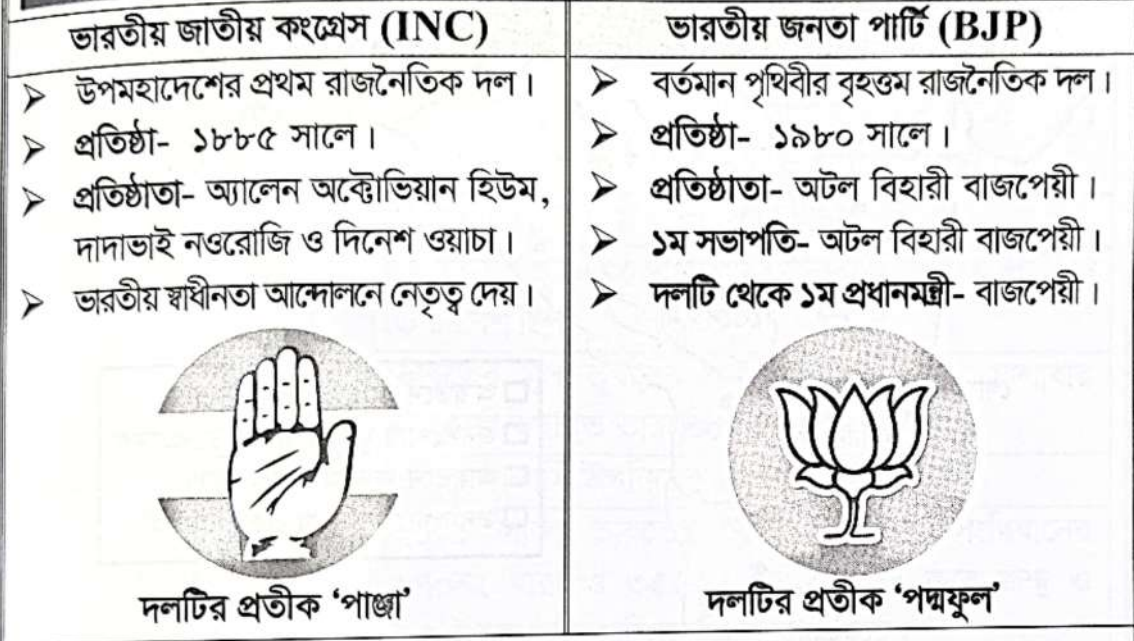 ভারতীয় জাতীয় কংগ্রেস (INC)
➢ উপমহাদেশের প্রথম রাজনৈতিক দল।
➢ প্রতিষ্ঠা- ১৮৮৫ সালে।
➢ প্রতিষ্ঠাতা- অ্যালেন অক্টোভিয়ান হিউম,
দাদাভাই নওরোজি ও দিনেশ ওয়াচা।
➢ ভারতীয় স্বাধীনতা আন্দোলনে নেতৃত্ব দেয়।
দলটির প্রতীক ‘পাঞ্জা’
ভারতীয় জনতা পার্টি (BJP)
➢ বর্তমান পৃথিবীর বৃহত্তম রাজনৈতিক দল।
➢ প্রতিষ্ঠা- ১৯৮০ সালে।
➢ প্রতিষ্ঠাতা- অটল বিহারী বাজপেয়ী।
➢ ১ম সভাপতি- অটল বিহারী বাজপেয়ী।
➢ দলটি থেকে ১ম প্রধানমন্ত্রী- বাজপেয়ী।
দলটির প্রতীক ‘পদ্মফুল’